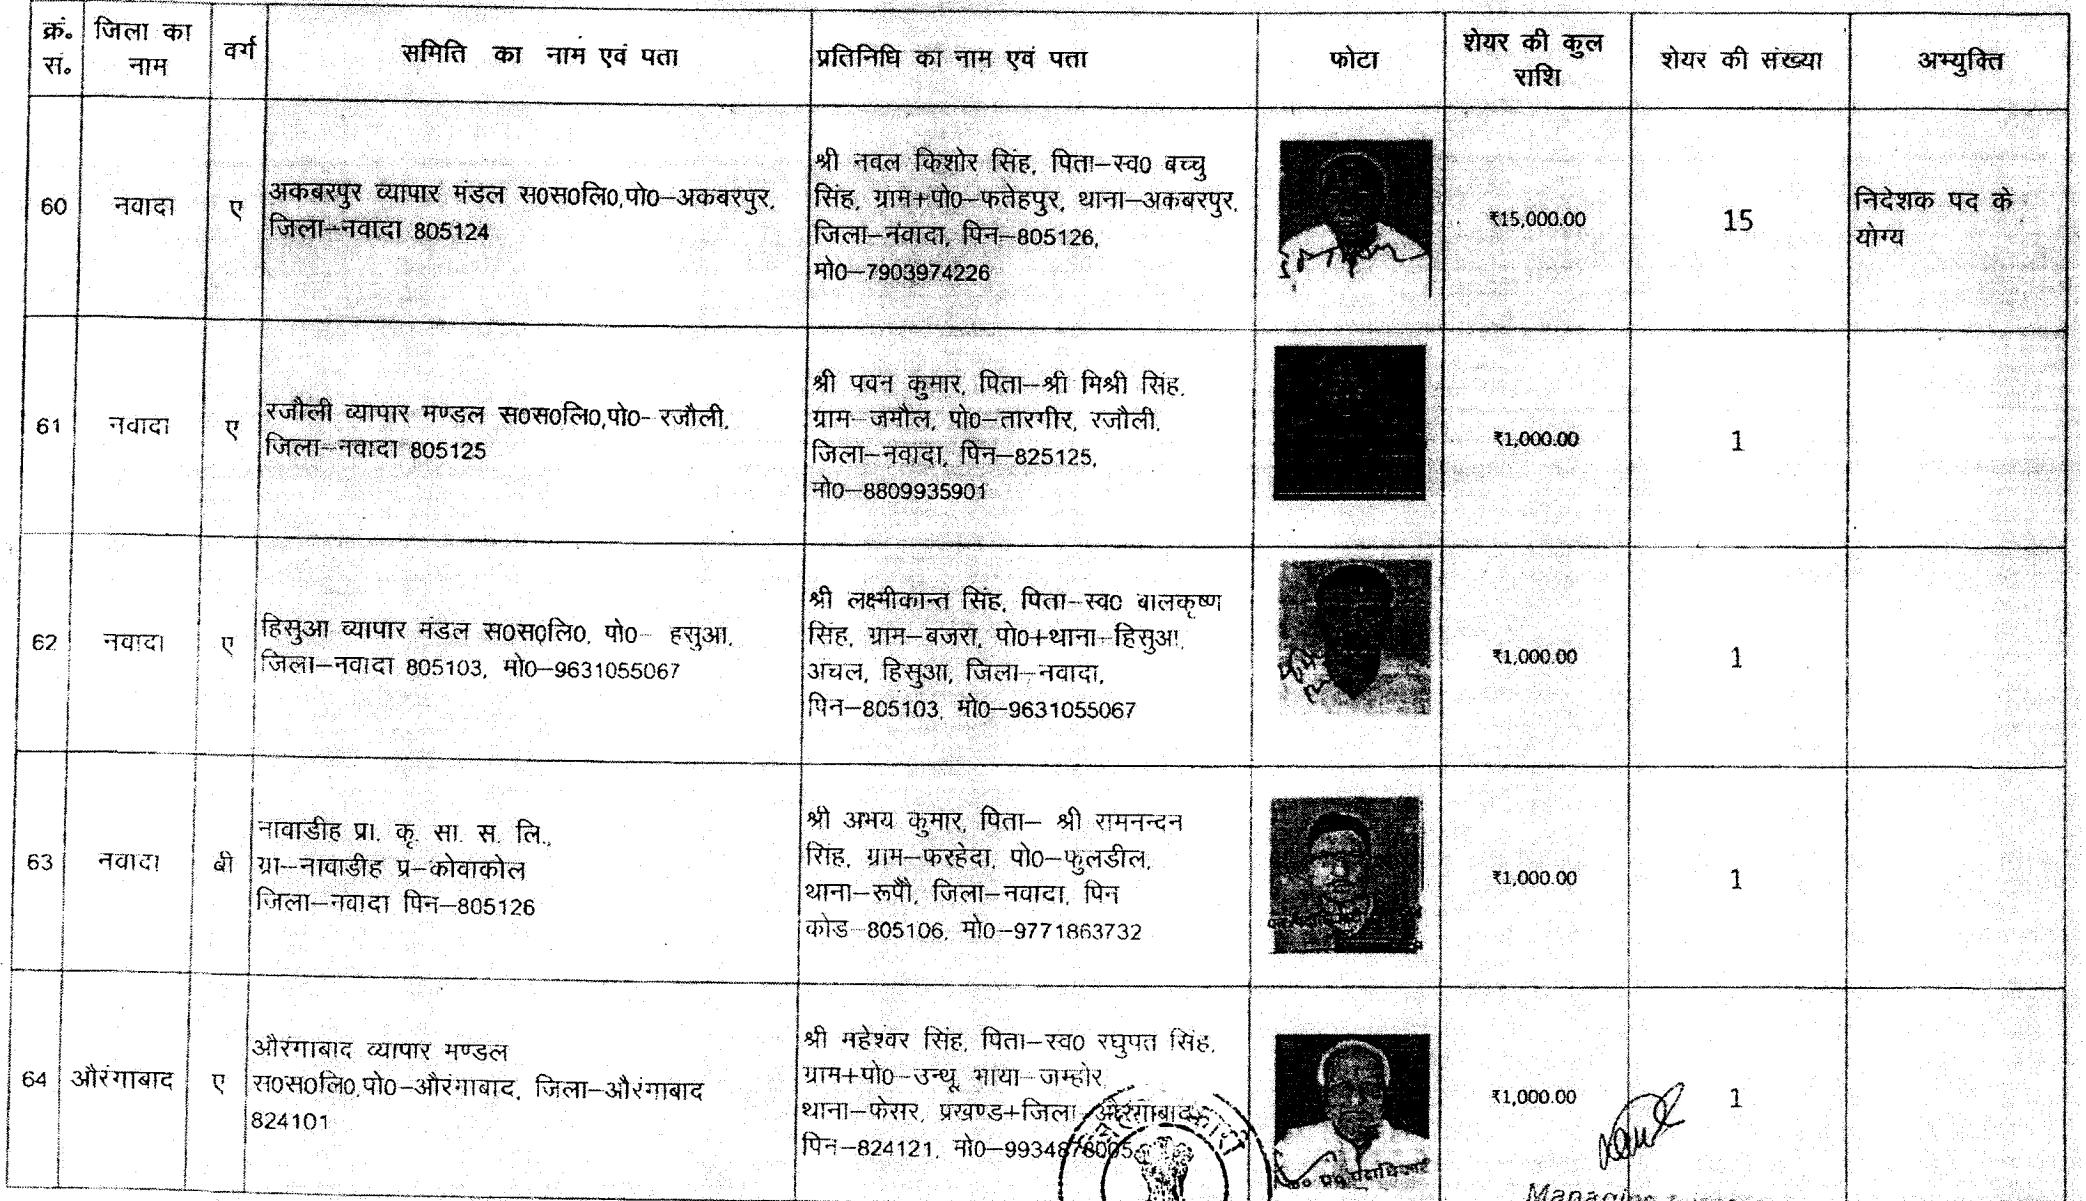 क्रं. सं.
जिला का नाम
वर्ग
समिति का नाम एवं पता
प्रतिनिधि का नाम एवं पता
फोटा
शेयर की कुल राशि
शेयर की संख्या
अभ्युक्ति
60
नवादा
ए
अकबरपुर व्यापार मंडल स0स0लि0,पो0–अकबरपुर,
जिला–नवादा 805124
श्री नवल किशोर सिंह, पिता–स्व0 बच्चु
सिंह, ग्राम+पो0–फतेहपुर, थाना–अकबरपुर,
जिला–नवादा, पिन–805126,
मो0–7903974226
₹15,000.00
15
निदेशक पद के
योग्य
61
नवादा
ए
रजौली व्यापार मण्डल स0स0लि0,पो0- रजौली,
जिला–नवादा 805125
श्री पवन कुमार, पिता–श्री मिश्री सिंह,
ग्राम–जमौल, पो0–तारगीर, रजौली,
जिला–नवादा, पिन–825125,
मो0–8809935901
₹1,000.00
1
62
नवादा
ए
हिसुआ व्यापार मंडल स0स0लि0, पो0– हसुआ,
जिला–नवादा 805103, मो0–9631055067
श्री लक्ष्मीकान्त सिंह, पिता–स्व0 बालकृष्ण
सिंह, ग्राम–बजरा, पो0+थाना–हिसुआ,
अंचल, हिसुआ, जिला–नवादा,
पिन–805103, मो0–9631055067
₹1,000.00
1
63
नवादा
बी
नावाडीह प्रा. कृ. सा. स. लि.,
ग्रा–नावाडीह प्र–कोवाकोल
जिला–नवादा पिन–805126
श्री अभय कुमार, पिता– श्री रामनन्दन
सिंह, ग्राम–फरहेदा, पो0–फुलडील,
थाना–रूपौ, जिला–नवादा, पिन
कोड–805106, मो0–9771863732
₹1,000.00
1
64
औरंगाबाद
ए
औरंगाबाद व्यापार मण्डल
स0स0लि0,पो0–औरंगाबाद, जिला–औरंगाबाद
824101
श्री महेश्वर सिंह, पिता–स्व0 रघुपत सिंह,
ग्राम+पो0–उन्थू, भाया–जम्होर,
थाना–फेसर, प्रखण्ड+जिला–औरंगाबाद,
पिन–824121, मो0–9934878005
₹1,000.00
1